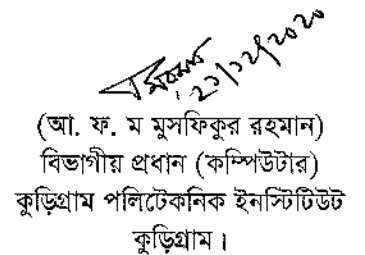 ২১/১২/২০২০
(আ. ফ. ম মুসফিকুর রহমান)
বিভাগীয় প্রধান (কম্পিউটার)
কুড়িগ্রাম পলিটেকনিক ইনস্টিটিউট
কুড়িগ্রাম।